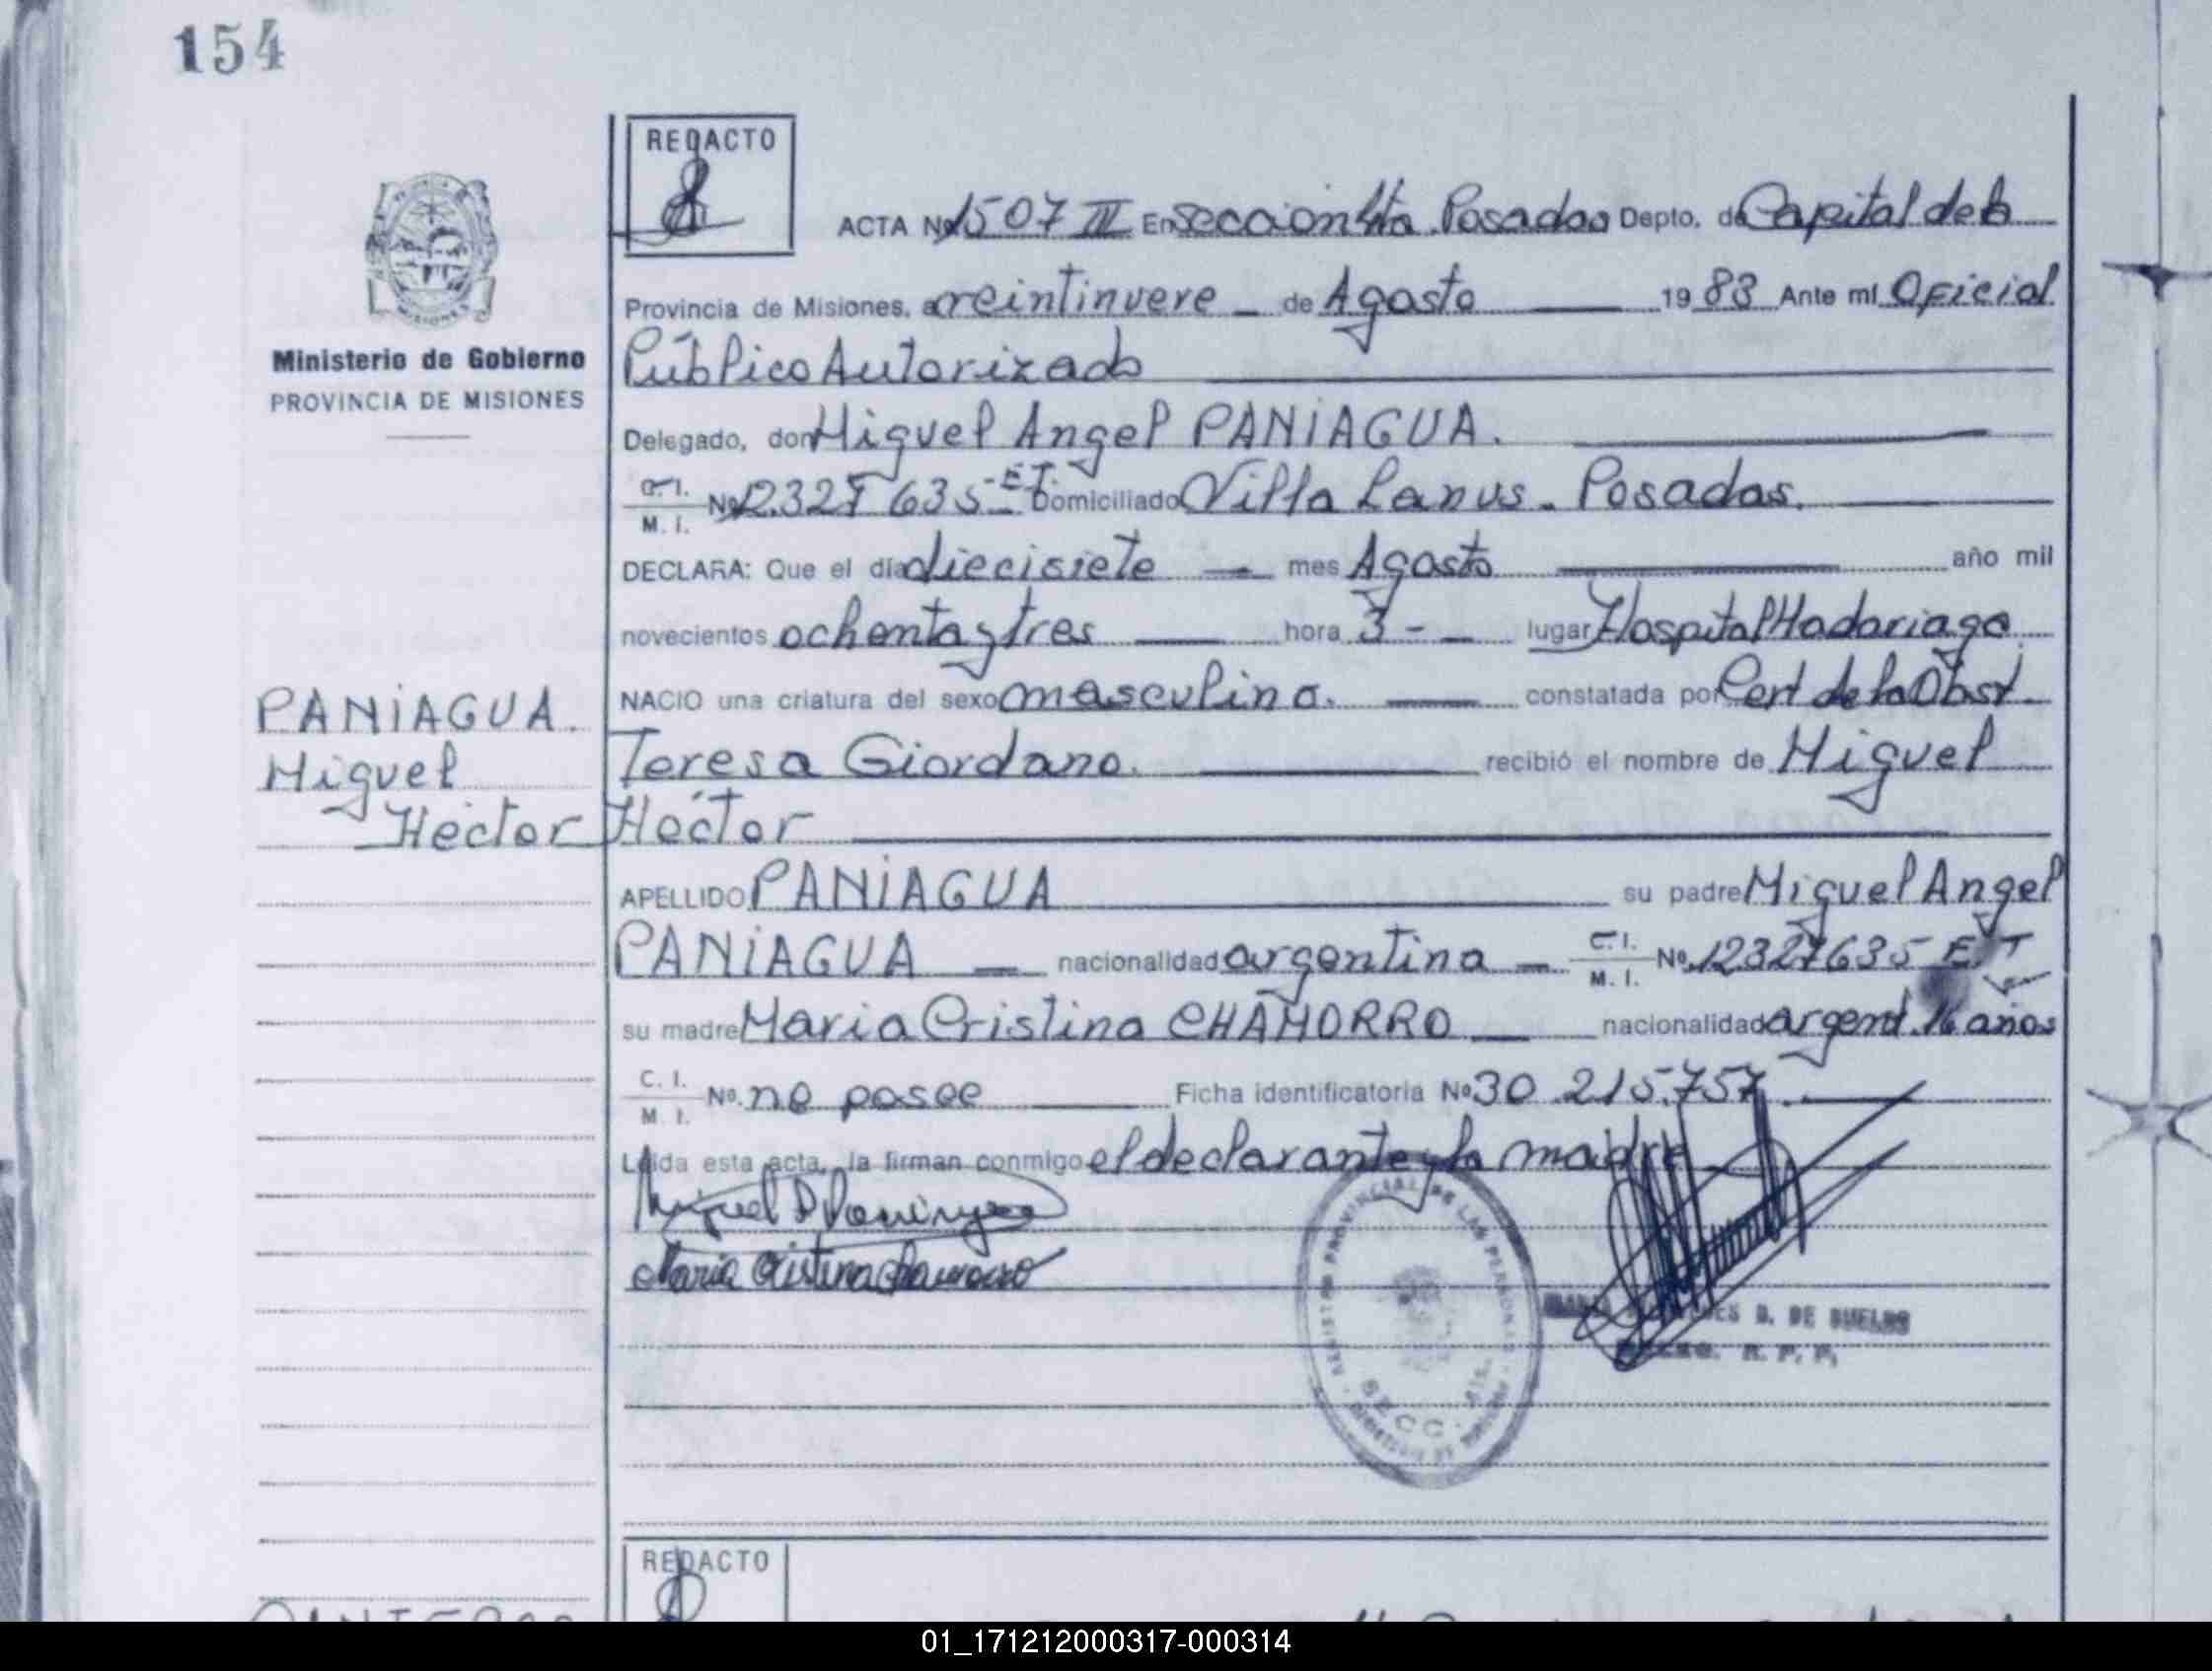 154
REDACTO
ACTA Nº 1507 III En sección 4ta. Posadas Depto. de Capital de la
Provincia de Misiones, a veintinueve de Agosto 1983 Ante mí Oficial
Público Autorizado
Ministerio de Gobierno
PROVINCIA DE MISIONES
Delegado, don Miguel Angel PANIAGUA.
C. I. M. I. Nº 12.327 635-E.T. Domiciliado Villa Lanus - Posadas.
DECLARA: Que el día diecisiete mes Agosto año mil
novecientos ochenta y tres hora 3 - lugar Hospital Madariaga
NACIO una criatura del sexo masculino. constatada por Cert de la Obst.
PANIAGUA.
Miguel
Héctor
Teresa Giordano. recibió el nombre de Miguel
Héctor
APELLIDO PANIAGUA su padre Miguel Angel
PANIAGUA nacionalidad argentina C. I. M. I. Nº 12327635 E.T
su madre Maria Cristina CHAMORRO nacionalidad argent. 16 años
C. I. M. I. Nº no posee Ficha identificatoria Nº 30.215.757.
Leída esta acta, la firman conmigo el declarante y la madre
Miguel
Maria Cristina Chamorro
REGISTRO PROVINCIAL DE LAS PERSONAS
SECC.
D. DE BUELBO
R. P. P.
REDACTO
01_171212000317-000314